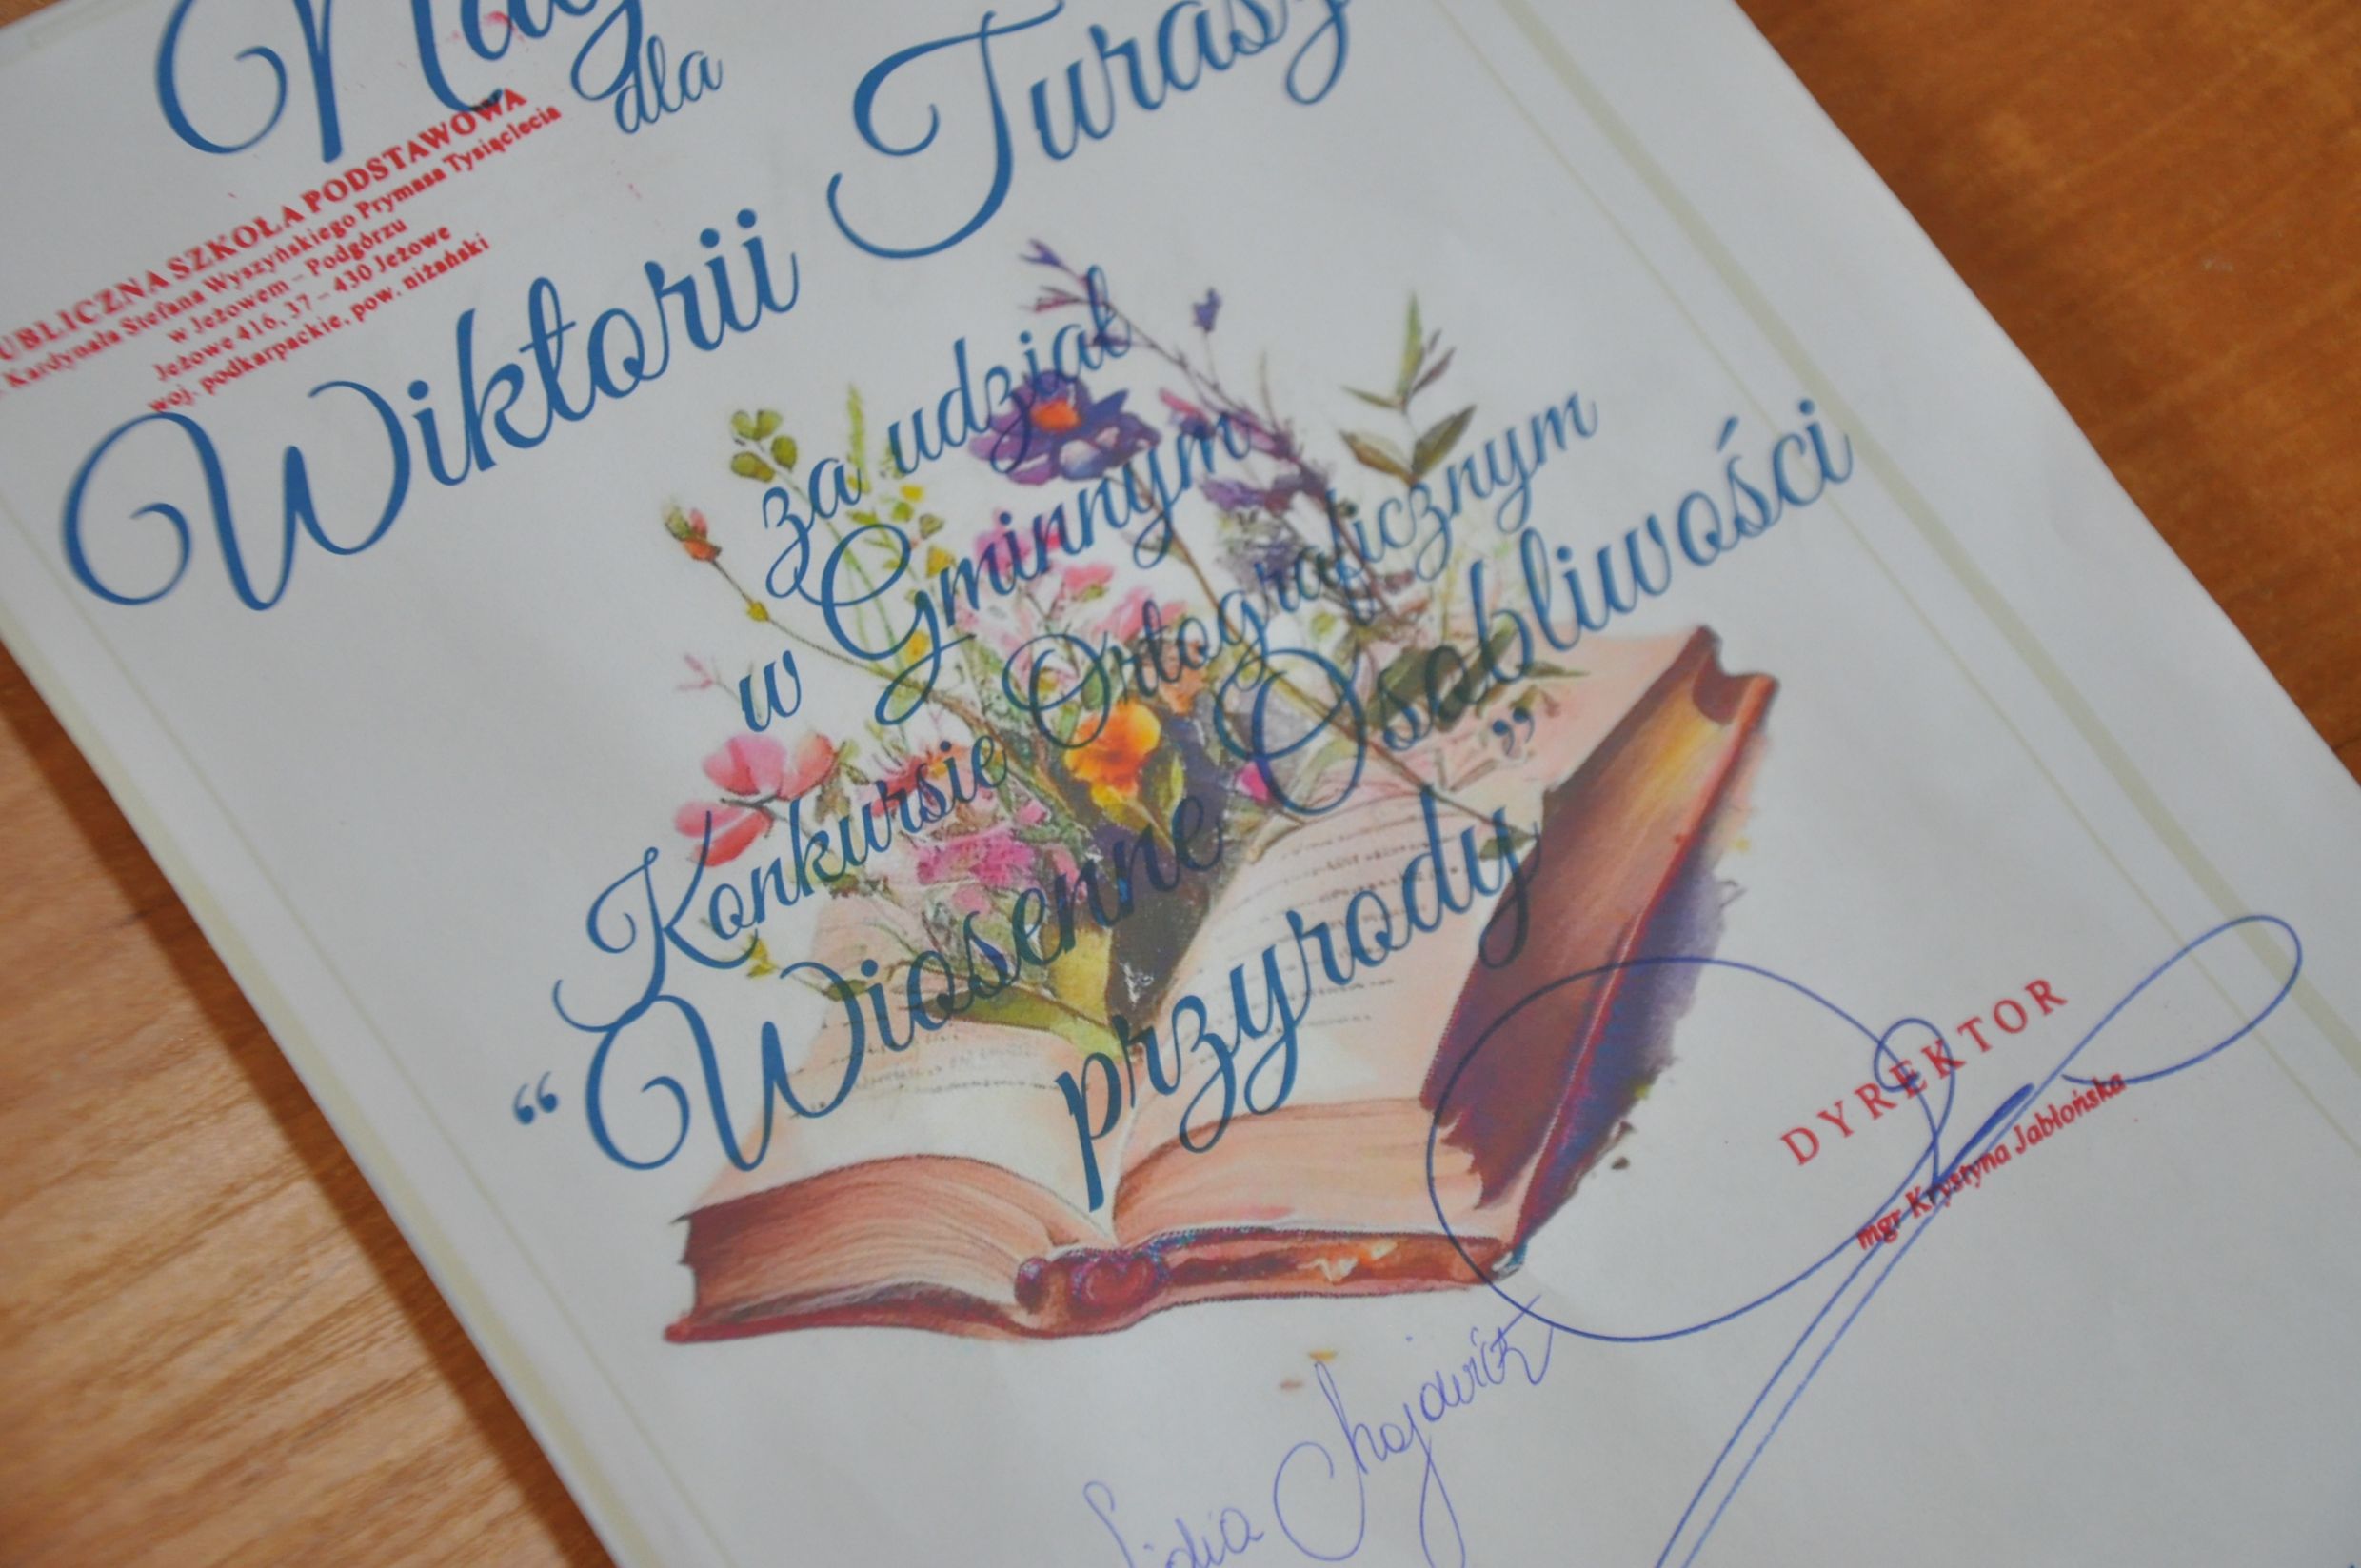 dla
PUBLICZNA SZKOŁA PODSTAWOWA
Kardynała Stefana Wyszyńskiego Prymasa Tysiąclecia
w Jeżowem – Podgórzu
Jeżowe 416, 37 – 430 Jeżowe
woj. podkarpackie, pow. niżański
Wiktorii Turasz
za udział
w Gminnym
Konkursie Ortograficznym
“Wiosenne Osobliwości
przyrody”
DYREKTOR
mgr Krystyna Jabłońska
Lidia Chojawicz